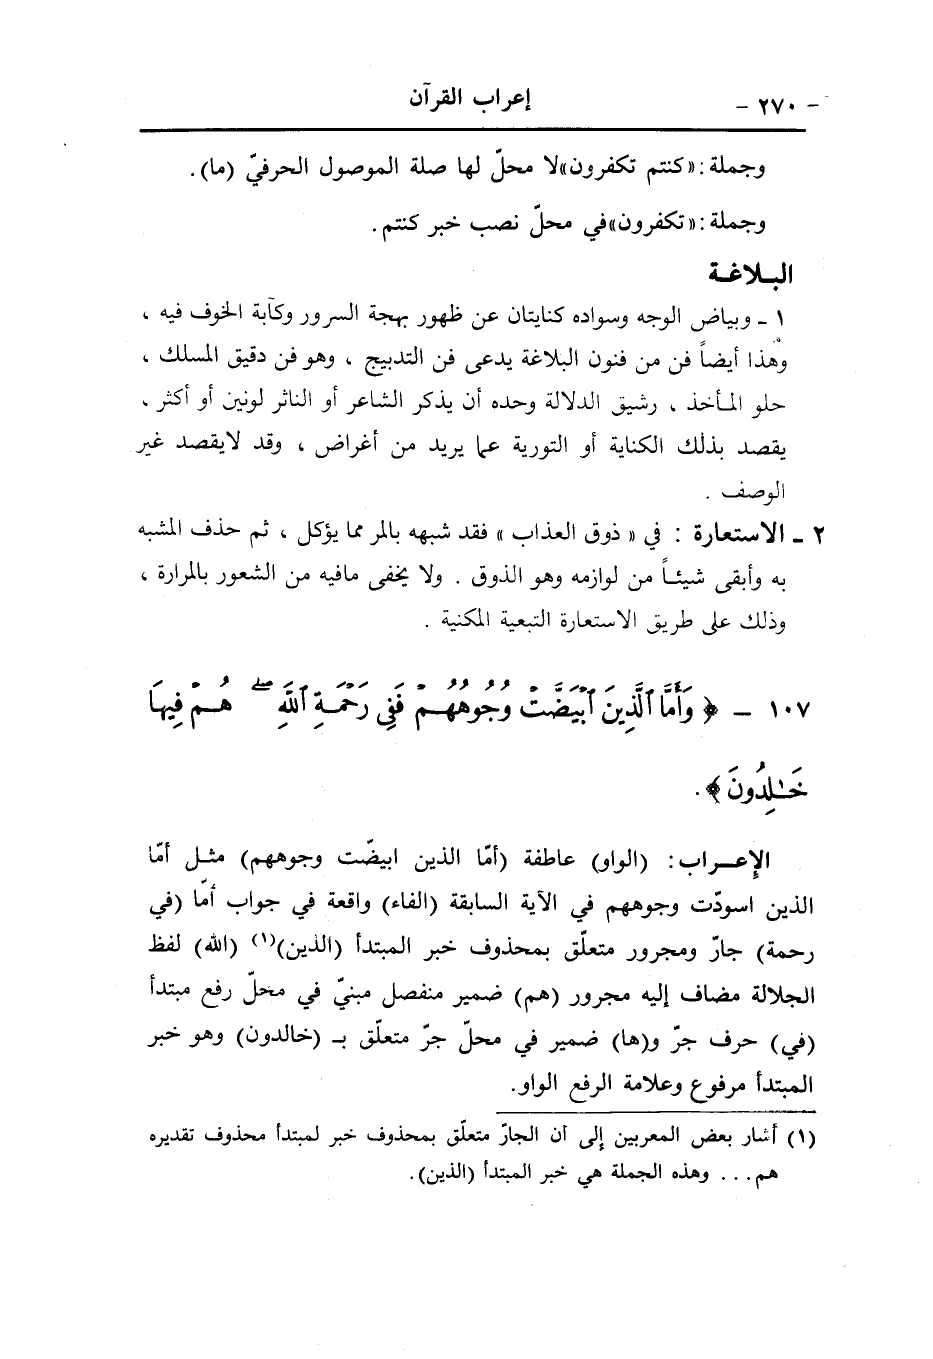 - ٢٧٠ -
إعراب القرآن
وجملة : «كنتم تكفرون»لا محلّ لها صلة الموصول الحرفيّ (ما) .
وجملة : «تكفرون»في محلّ نصب خبر كنتم .
البـلاغـة
١ ـ وبياض الوجه وسواده كنايتان عن ظهور بهجة السرور وكآبة الخوف فيه ،
وهذا أيضاً فن من فنون البلاغة يدعى فن التدبيج ، وهو فن دقيق المسلك ،
حلو المأخذ ، رشيق الدلالة وحده أن يذكر الشاعر أو الناثر لونين أو أكثر ،
يقصد بذلك الكناية أو التورية عما يريد من أغراض ، وقد لايقصد غير
الوصف .
٢ ـ الاستعارة : في « ذوق العذاب » فقد شبهه بالمر مما يؤكل ، ثم حذف المشبه
به وأبقى شيئاً من لوازمه وهو الذوق . ولا يخفى مافيه من الشعور بالمرارة ،
وذلك على طريق الاستعارة التبعية المكنية .
١٠٧ ـ ﴿ وَأَمَّا ٱلَّذِينَ ٱبْيَضَّتْ وُجُوهُهُمْ فَفِى رَحْمَةِ ٱللَّهِ ۖ هُمْ فِيهَا
خَـٰلِدُونَ ﴾ .
الإعـراب : (الواو) عاطفة (أمّا الذين ابيضّت وجوههم) مثـل أمّا
الذين اسودّت وجوههم في الآية السابقة (الفاء) واقعة في جواب أمّا (في
رحمة) جارّ ومجرور متعلّق بمحذوف خبر المبتدأ (الذين)(١) (الله) لفظ
الجلالة مضاف إليه مجرور (هم) ضمير منفصل مبنيّ في محلّ رفع مبتدأ
(في) حرف جرّ و(ها) ضمير في محلّ جرّ متعلّق بـ (خالدون) وهو خبر
المبتدأ مرفوع وعلامة الرفع الواو.
(١) أشار بعض المعربين إلى أن الجارّ متعلّق بمحذوف خبر لمبتدأ محذوف تقديره
هم... وهذه الجملة هي خبر المبتدأ (الذين).